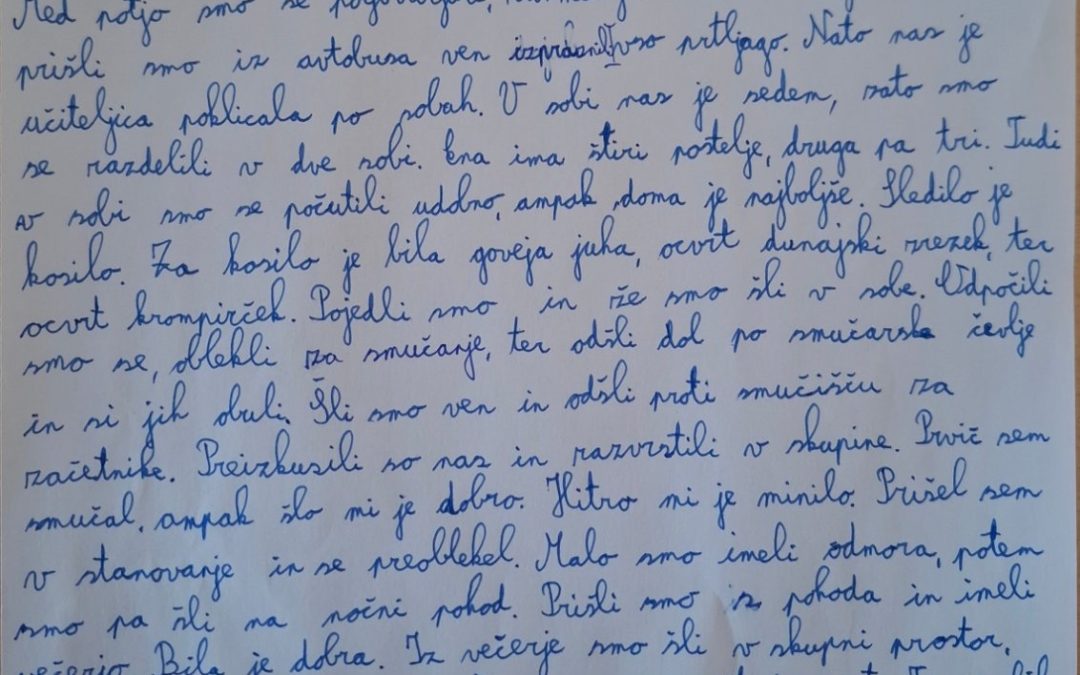 Med potjo smo se
prišli smo iz avtobusa ven izpraznili vso prtljago. Nato nas je
učiteljica poklicala po sobah. V sobi nas je sedem, zato smo
se razdelili v dve sobi. Ena ima štiri postelje, druga pa tri. Tudi
v sobi smo se počutili udobno, ampak doma je najboljše. Sledilo je
kosilo. Za kosilo je bila goveja juha, ocvrt dunajski zrezek, ter
ocvrt krompirček. Pojedli smo in že smo šli v sobe. Odpočili
smo se, oblekli za smučanje, ter odšli dol po smučarske čevlje
in si jih obuli. Šli smo ven in odšli proti smučišču za
začetnike. Preizkusili so nas in razvrstili v skupine. Prvič sem
smučal, ampak šlo mi je dobro. Hitro mi je minilo. Prišel sem
v stanovanje in se preoblekel. Malo smo imeli odmora, potem
smo pa šli na nočni pohod. Prišli smo iz pohoda in imeli
večerjo. Bila je dobra. Iz večerje smo šli v skupni prostor,